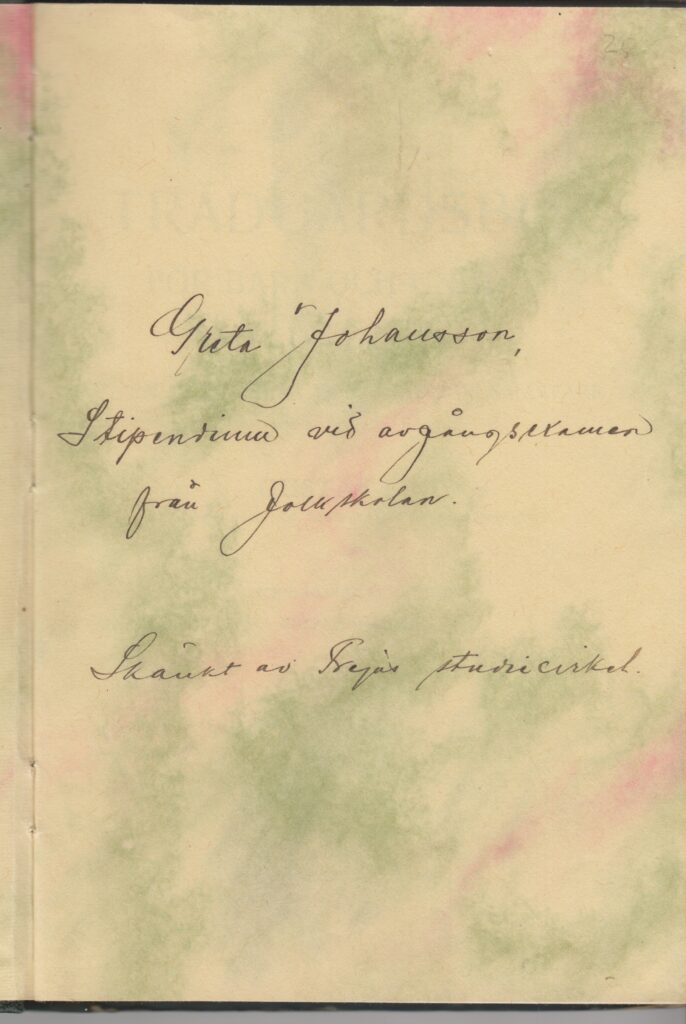 Greta Johansson,
Stipendium vid avgångsexamen
från Folkskolan.
Skänkt av Frejas studiecirkel.
TRÄDGÅRDSBO